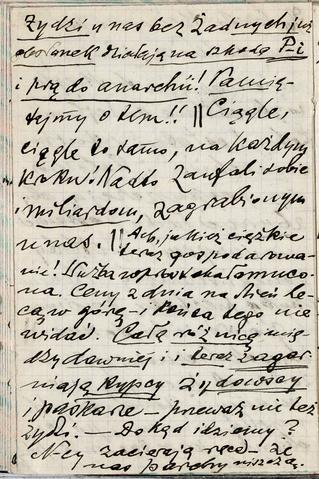 Żydzi u nas bez żadnych już
obsłonek działają na szkodę P-i
i prą do anarchii! Pamię-
tajmy o tem!! || Ciągle,
ciągle to samo, na każdym
kroku! Nadto zaufali sobie
i miliardom, zagrabionym
u nas. || Ach, jakież ciężkie
teraz gospodarowa-
nie! Służba rozpróżniaczona
Ceny z dnia na dzień le-
cą w górę - i końca tego nie
widać. Całą różnicę mię-
dzy dawniej i i teraz zagar-
niają kupcy żydowscy
i paskarze - przeważnie też
żydzi. - Dokąd idziemy?
Niemcy zacierają ręce - że
nas parchy niszczą.